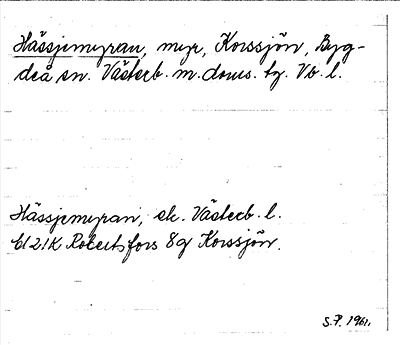 Hässjemyran, myr, Korssjön, Byg-
deå sn. Västerb. m. doms. tg. Vb. l.
Hässjemyran, ek. Västerb. l.
bl 21K Robertsfors 8g Korssjön.
S.P. 1961.